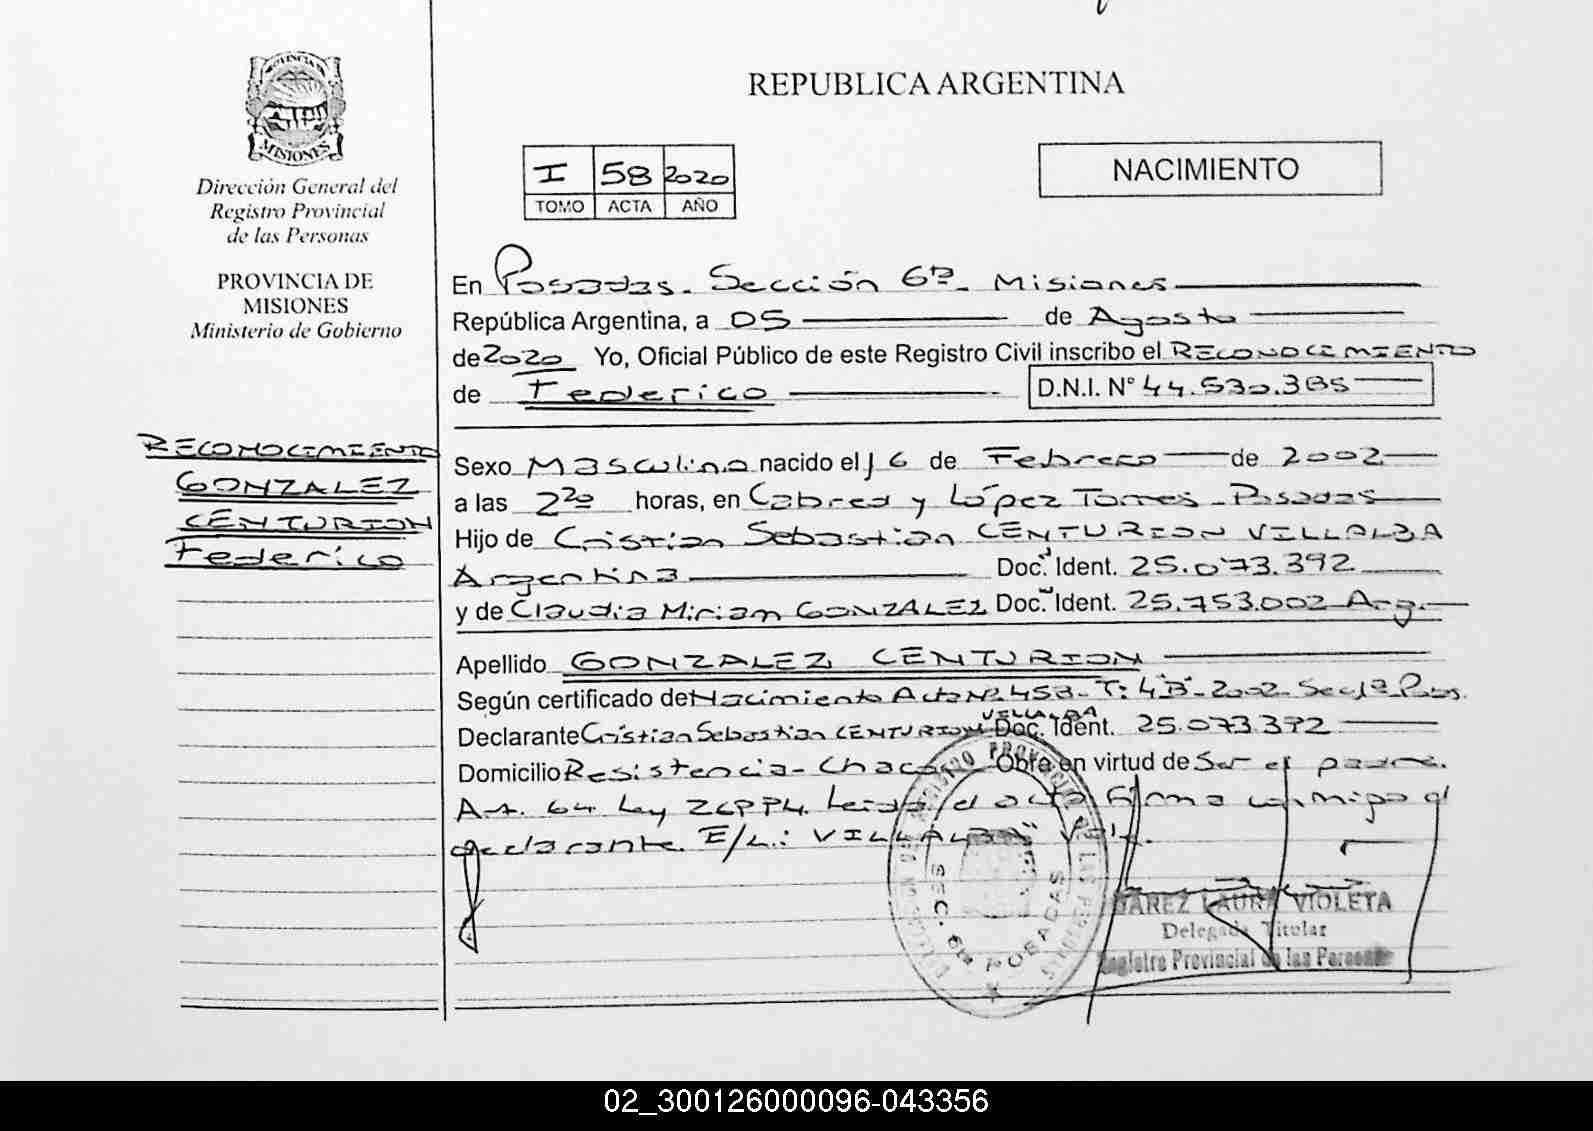 REPUBLICA ARGENTINA
MISIONES
Dirección General del
Registro Provincial
de las Personas
PROVINCIA DE
MISIONES
Ministerio de Gobierno
I 58 2020
TOMO ACTA AÑO
NACIMIENTO
En Posadas. Sección 6ta Misiones
República Argentina, a 05 de Agosto
de 2020 Yo, Oficial Público de este Registro Civil inscribo el RECONOCIMIENTO
de Federico D.N.I. N° 44.530.385
RECONOCIMIENTO
GONZALEZ
CENTURION
Federico
Sexo Masculino nacido el 16 de Febrero de 2002
a las 220 horas, en Cabred y López Torres - Posadas
Hijo de Cristian Sebastián CENTURION VILLALBA
Argentina Doc. Ident. 25.073.392
y de Claudia Miriam GONZALEZ Doc. Ident. 25.753.002 Arg.
Apellido GONZALEZ CENTURION
Según certificado de Nacimiento Acta Nº 453 - T: 4"B" - 2002 - Secc 1ª Pos.
Declarante Cristian Sebastian CENTURION VILLALBA Doc. Ident. 25.073.392
Domicilio Resistencia - Chaco Obra en virtud de Ser el padre.
Art. 64 Ley 26994. Leida el acta firma conmigo el
declarante. E/L.: "VILLALBA" Vale.
SEC. 6ta POSADAS
LAURA VIOLETA
Delegada Titular
Registro Provincial de las Personas
02_300126000096-043356